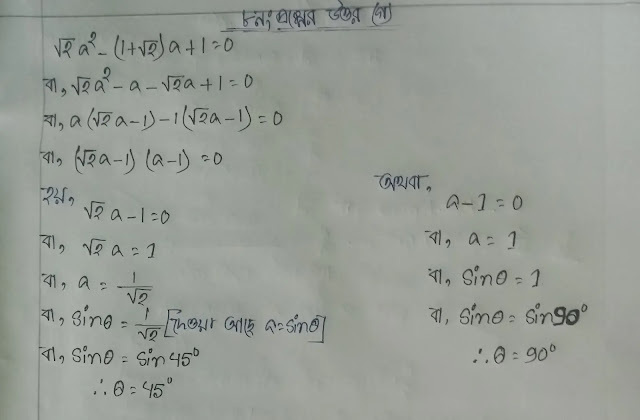 ৮নং প্রশ্নের উত্তর (গ)
√2 a² - (1+√2)a + 1 = 0
বা, √2a² - a - √2a + 1 = 0
বা, a(√2a-1) - 1(√2a-1) = 0
বা, (√2a-1) (a-1) = 0
হয়,
√2 a - 1 = 0
বা, √2 a = 1
বা, a = 1/√2
বা, sinθ = 1/√2 [দেওয়া আছে a = sinθ]
বা, sinθ = sin 45°
∴ θ = 45°
অথবা,
a - 1 = 0
বা, a = 1
বা, sinθ = 1
বা, sinθ = sin90°
∴ θ = 90°